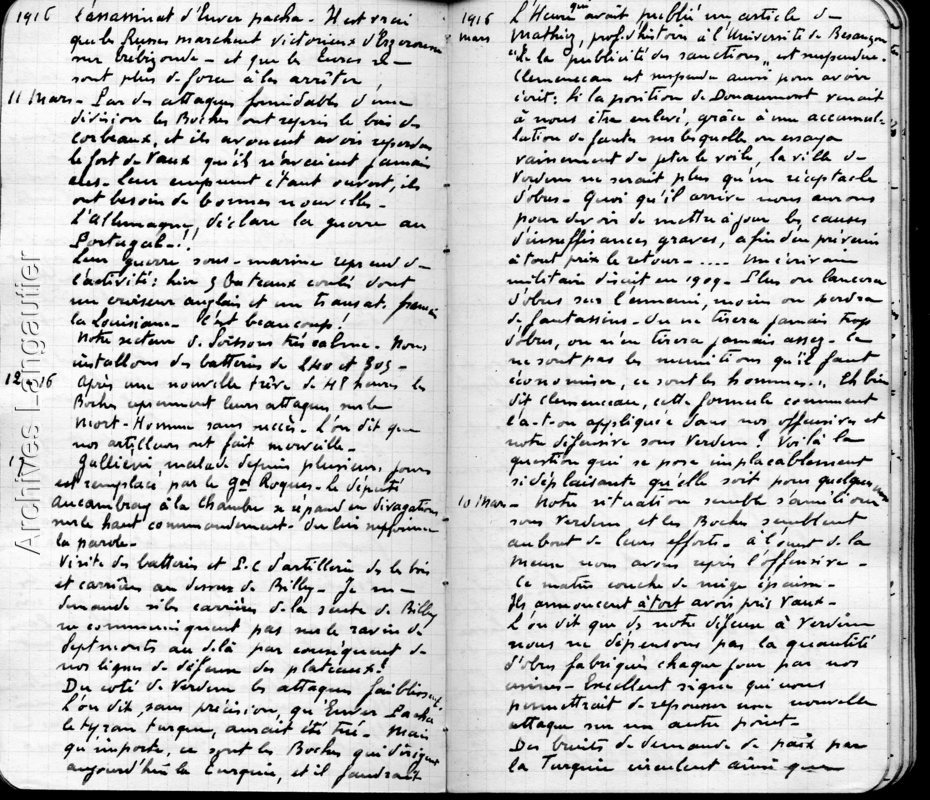 1916
l'assassinat d'Enver pacha - Il est vrai
que les Russes marchent victorieux d'Erzeroum
sur Trébizonde - et que les Turcs
sont plus de force à les arrêter
11 Mars - Par des attaques formidables d'une
division les Boches ont repris le bois des
Corbeaux, et ils avouent avoir reperdu
le fort de Vaux qu'ils n'avaient jamais
eus - Leur emprunt étant ouvert, ils
ont besoin de bonnes nouvelles -
L'Allemagne, déclare la guerre au
Portugal - !!
Leur guerre sous-marine reprend de
l'activité : hier 9 bateaux coulés dont
un croiseur anglais et un transat. français
la Louisiane - C'est beaucoup !
Notre secteur de Soissons très calme - Nous
installons des batteries de 240 et 305 -
12 - 16
Après une nouvelle trêve de 48 heures les
Boches reprennent leurs attaques sur le
Mort-Homme sans succès - L'on dit que
nos artilleurs ont fait merveille -
Galliéni malade depuis plusieurs jours
est remplacé par le Gal Roques - le député
Accambray à la Chambre se répand en divagations
sur le haut commandement - On lui
la parole -
Visite des batteries et P.C d'artillerie de le bois
et carrières au dessus de Billy - Je me
demande si les carrières de la sente de Billy
ne communiquent pas sur le ravin de
Septmonts au delà par conséquent de
nos lignes de défense des plateaux ?
Du coté de Verdun les attaques faiblissent
L'on dit, sans précision, qu'Enver Pacha
le tyran turque, aurait été tué - Mais
qu'importe, ce sont les Boches qui dirigent
aujourd'hui la Turquie, et il faudrait
1916
Mars
L'Heure qui avait publié un article de
Mathiez, prof d'histoire à l'Université de Besançon
"de la publicité des sanctions" est suspendue.
Clemenceau est suspendu aussi pour avoir
écrit : Si la position de Douaumont venait
à nous être enlevé, grâce à une accumu-
lation de fautes sur lesquelles on essaya
vainement de jeter le voile, la ville de
Verdun ne serait plus qu'un réceptacle
d'obus - Quoi qu'il arrive nous aurons
pour devoir de mettre à jour les causes
d'insuffisances graves, afin d'en prévenir
à tout prix le retour - .... Un écrivain
militaire disait en 1909 - Plus on lancera
d'obus sur l'ennemi, moins on perdra
de fantassins - On ne tirera jamais trop
d'obus, on n'en tirera jamais assez - Ce
ne sont pas les munitions qu'il faut
économiser, ce sont les hommes... Eh bien
dit Clemenceau, cette formule comment
l'a-t-on appliquée dans nos offensives et
notre défensive sous Verdun ? Voilà la
question qui se pose implacablement
si déplaisante qu'elle soit pour quelques uns
10 Mars - Notre situation semble s'améliorer
sous Verdun, et les Boches semblent
au bout de leurs efforts - à l'ouest de la
Meuse nous avons repris l'offensive -
Ce matin couche de neige épaisse -
Ils annoncent à tort avoir pris Vaux -
L'on dit que de notre défense à Verdun
nous ne dépensons pas la quantité
d'obus fabriqués chaque jour par nos
usines - Excellent signe qui nous
permettrait de repousser une nouvelle
attaque sur un autre point -
Des bruits de demande de paix par
la Turquie circulent ainsi que
Archives Langautier